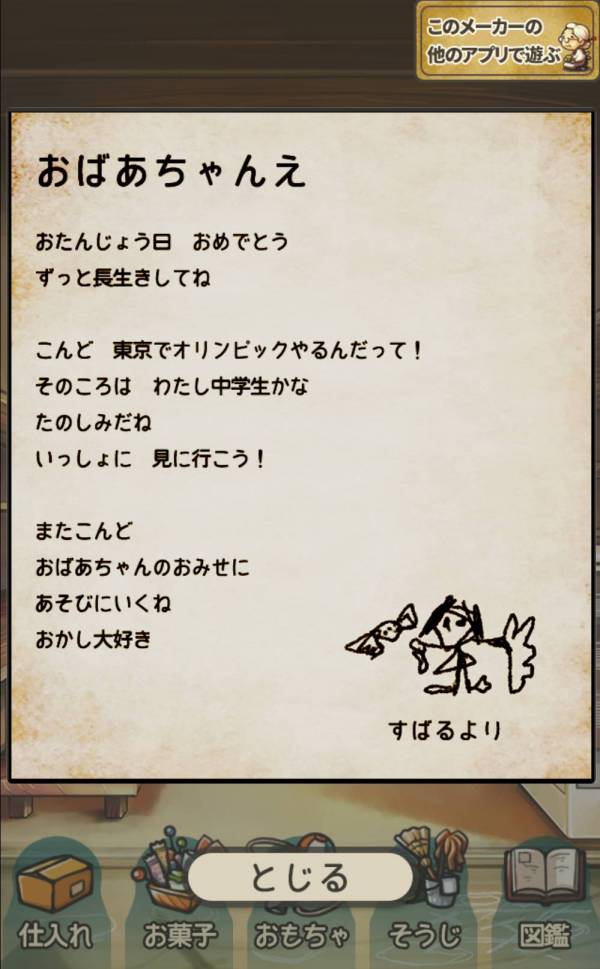 このメーカーの
他のアプリで遊ぶ
おばあちゃんえ
おたんじょう日　おめでとう
ずっと長生きしてね
こんど　東京でオリンピックやるんだって！
そのころは　わたし中学生かな
たのしみだね
いっしょに　見に行こう！
またこんど
おばあちゃんのおみせに
あそびにいくね
おかし大好き
すばるより
とじる
仕入れ　お菓子　おもちゃ　そうじ　図鑑